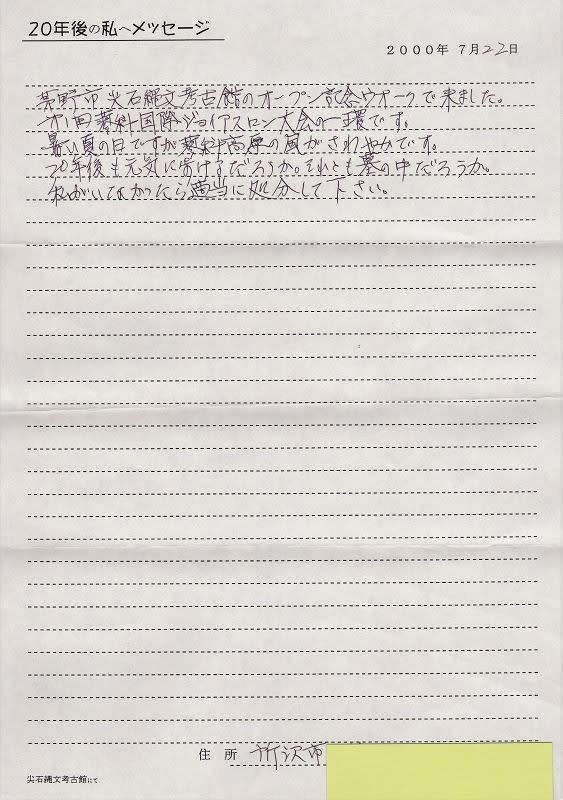 20年後の私へメッセージ
2000年 7月22日
茅野市尖石縄文考古館のオープン記念ウオークで来ました。
才1回蓼科国際ジョイアスロン大会の一環です。
暑い夏の日ですが蓼科高原の風がさわやかです。
20年後も元気に歩けるだろうか。それとも墓の中だろうか。
私がいなかったら適当に処分して下さい。
住 所 所沢市
尖石縄文考古館にて